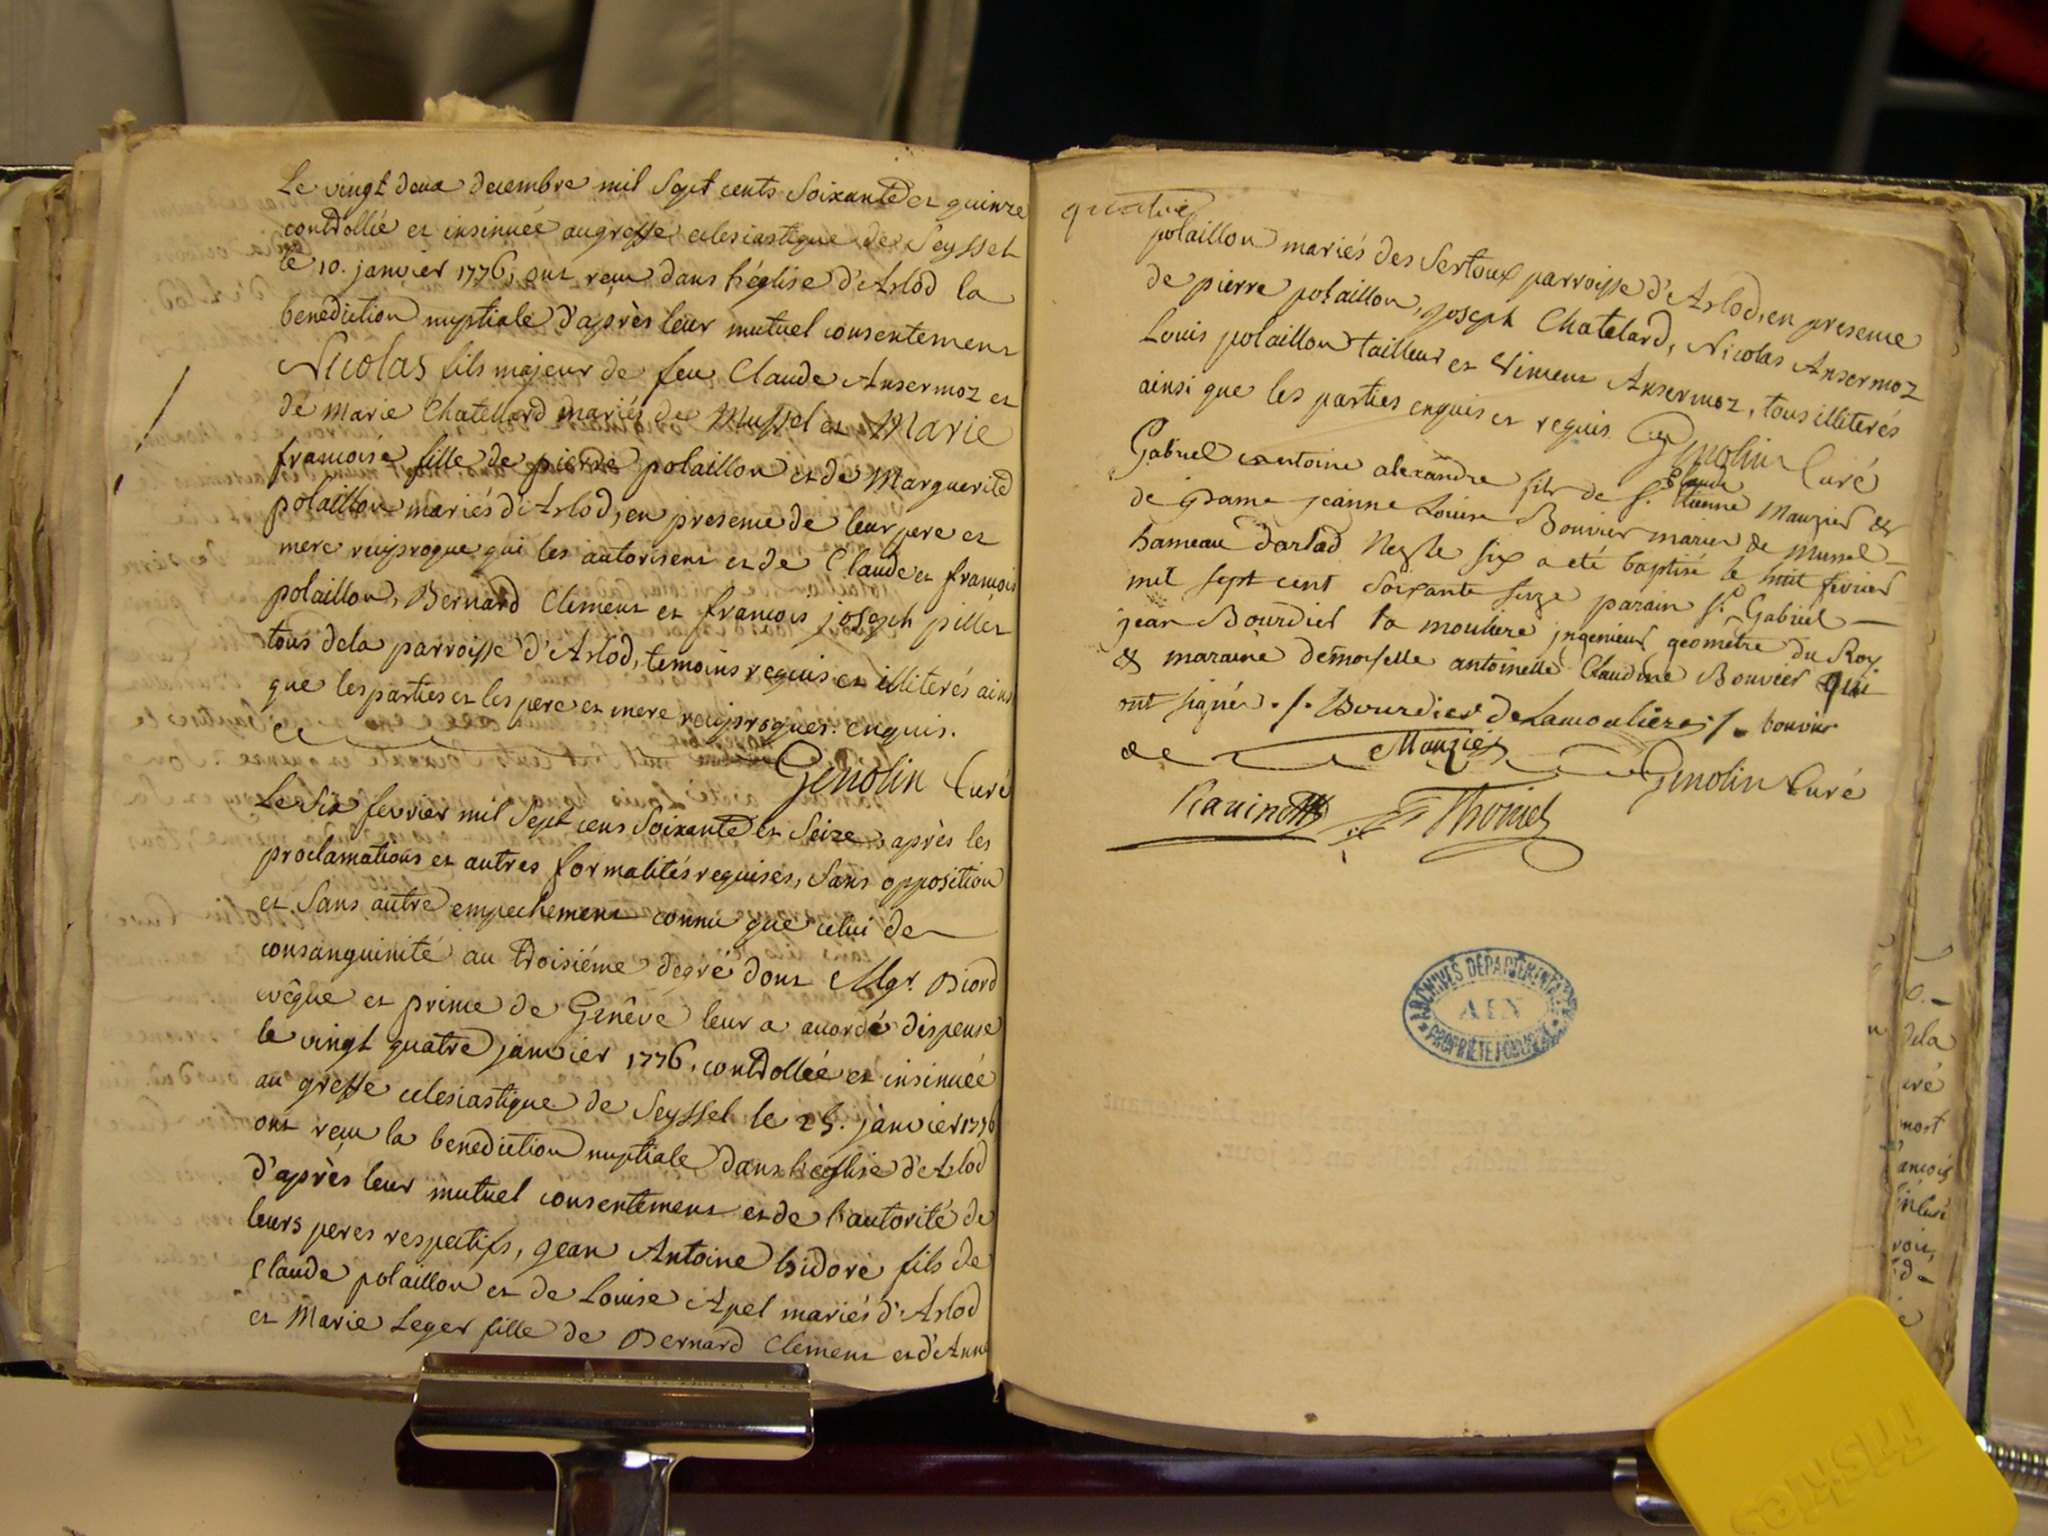 Le vingt deux decembre mil Sept cents Soixante et quinze
controllée et insinuée au greffe eclesiastique de Seyssel
le 10. janvier 1776, ont reçu dans l'église d'Arlod la
benediction nuptiale d'après leur mutuel consentement
Nicolas fils majeur de feu Claude Ansermoz et
de Marie Chatellard mariés de Mussel et Marie
françoise fille de pierre polaillon et de Marguerite
polaillon mariés d'Arlod, en presence de leur pere et
mere reciproque qui les autorisent et de Claude et françois
polaillon, Bernard Clement et françois joseph pillet
tous de la parroisse d'Arlod, temoins requis et illiterés ainsi
que les parties et les pere et mere reciproques. enquis.
Genolin Curé
Le Six fevrier mil Sept cens Soixante et Seize, après les
proclamations et autres formalités requises, Sans opposition
et Sans autre empechement connu que celui de
consanguinité au troisiéme degré dont Mgr. Biord
evêque et prince de Genêve leur a accordé dispense
le vingt quatre janvier 1776. controllée et insinuée
au greffe eclesiastique de Seyssel le 25. janvier 1776
ont reçu la benediction nuptiale dans l'eglise d'Arlod
d'après leur mutuel consentement et de l'autorité de
leurs peres respectifs, jean Antoine Isidore fils de
Claude polaillon et de Louise Apel mariés d'Arlod
et Marie Leger fille de Bernard Clement et d'Anne
quatre
polaillon mariés des Sertoux parroisse d'Arlod, en presence
de pierre polaillon, joseph Chatelard, Nicolas Ansermoz
Louis polaillon tailleur et Vincent Ansermoz, tous illiterés
ainsi que les parties enquis et requis. Genolin Curé
Gabriel antoine alexandre fils de Sr. Claude Etienne Mauzier &
de Dame jeanne Louise Bouvier mariés de Mussel
hameau d'arlod né le six a eté baptisé le huit fevrier
mil sept cent soixante seize parain Sr. Gabriel
jean Bourdier la mouliere ingenieur geometre du Roy
& maraine demoiselle antoinette Claudine Bouvier qui
ont signés. /. Bourdier de Lamouliere /. bouvier
Mauzier Genolin Curé
Ravinet Thomet
ARCHIVES DÉPARTEMENTALES
AIN
PROPRIÉTÉ PUBLIQUE
dela
curé
mort
ançois
Triskles